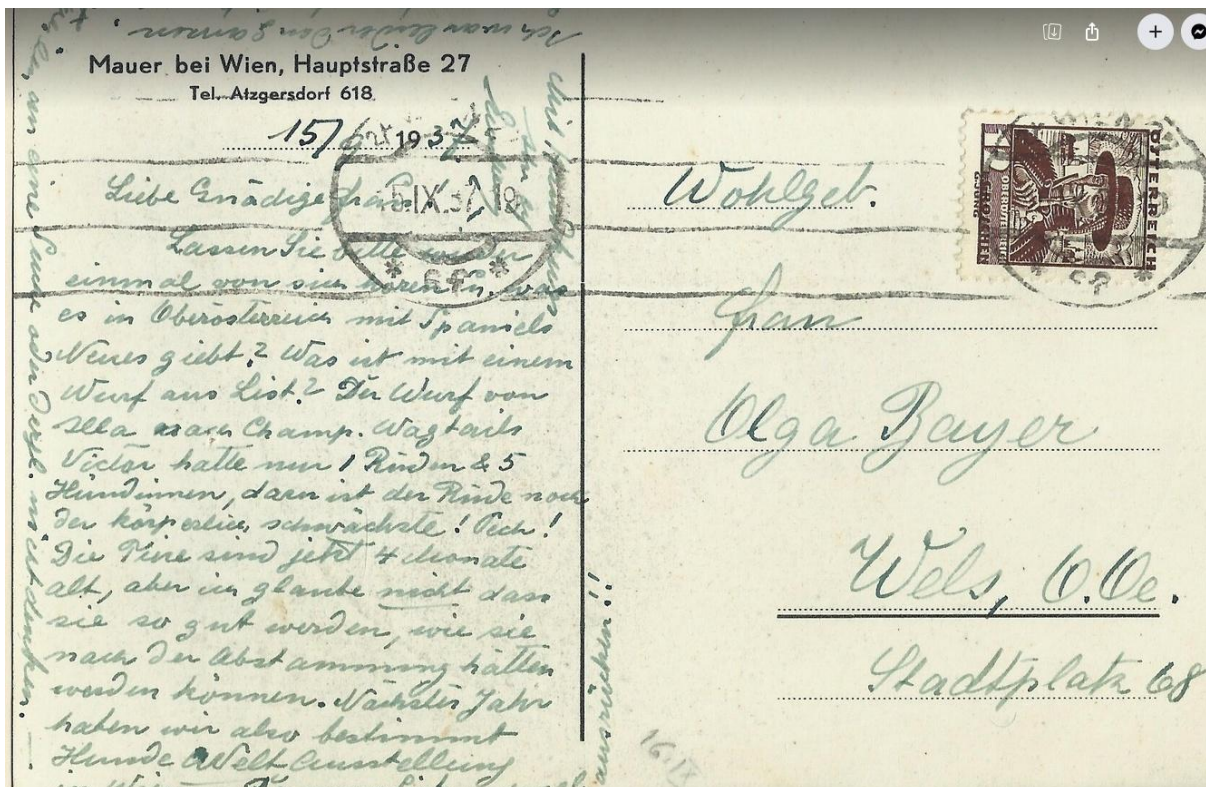 Mauer bei Wien, Hauptstraße 27
Tel. Atzgersdorf 618
15/9 1937
Liebe Gnädige Frau!
Lassen Sie bitte wieder
einmal von sich hören u. was
es in Oberösterreich mit Spaniels
Neues giebt? Was ist mit einem
Wurf aus List? Der Wurf von
nach Champ. Wagtails
Victor hatte nur 1 Rüden & 5
Hündinnen, dazu ist der Rüde noch
der körperlich schwächste! Pech!
Die Tiere sind jetzt 4 Monate
alt, aber ich glaube nicht dass
sie so gut werden, wie sie
nach der Abstammung hätten
werden können. Nächstes Jahr
haben wir also bestimmt
Hunde Welt Ausstellung
in Wien.
ausrücken!!
an eine Suche oder dergl. nicht denken. —
Ich war leider den ganzen
15.IX.37 18
Wohlgeb.
Frau
Olga Bayer
Wels, O.Oe.
Stadtplatz 68
ÖSTERREICH
16.IX